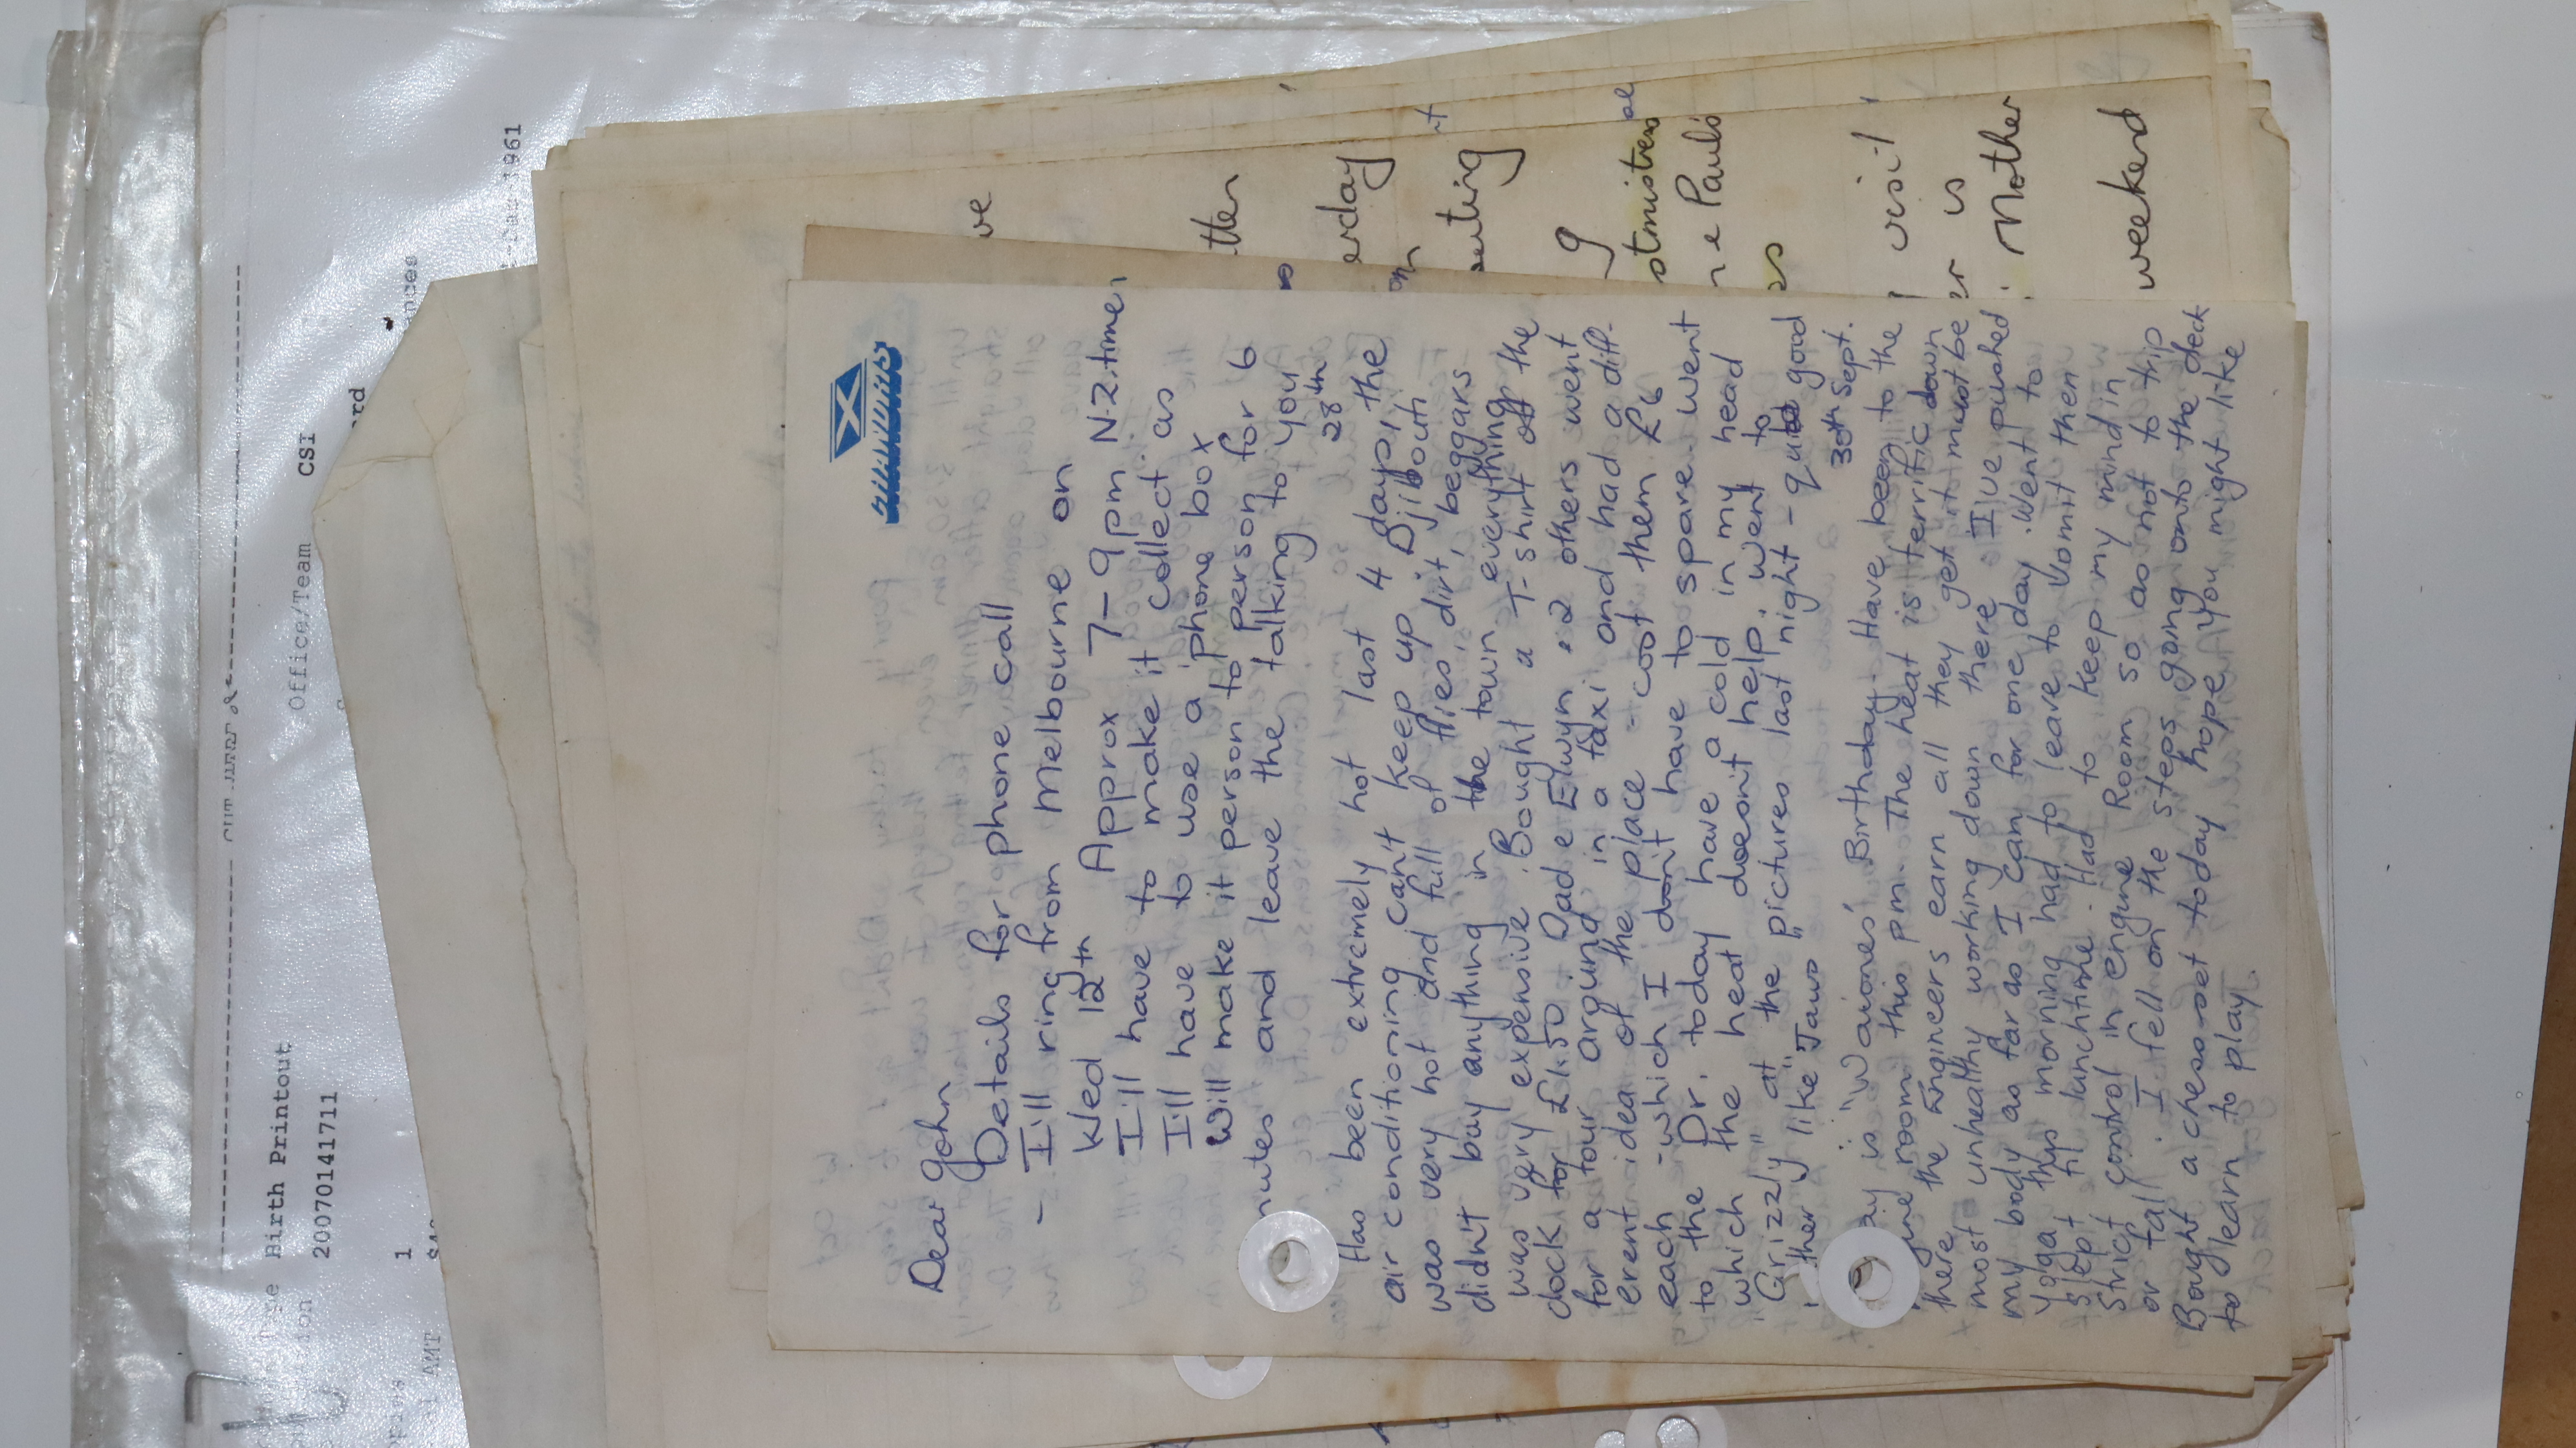 Dear John
Details for phone call
- I'll ring from Melbourne on
Wed 12th Approx 7-9pm N.Z. time,
I'll have to make it collect as
I'll have to use a phone box
Will make it person to person for 6
nutes and leave the talking to you
28th
Has been extremely hot last 4 days, the
air conditioning can't keep up Djibouti
was very hot and full of flies, dirt, beggars
didn't buy anything in the town everything
was very expensive. Bought a T-shirt off the
dock for £1.50 Dad e Elwyn e 2 others went
for a tour around in a taxi and had a diff-
erent idea of the place - cost them £6
each - which I don't have to spare. Went
to the Dr. today have a cold in my head
which the heat doesn't help. Went to
"Grizzly" at the pictures last night - quite good
ther like "Jaws"
30th Sept.
ay is "Waiones" Birthday. Have been to the
gine room this pm. The heat is terrific down
there, the Engineers earn all they get it must be
most unhealthy working down there I've pushed
my body as far as I can for one day. Went to
Yoga this morning had to leave to vomit then
slept til lunchtime. Had to keep my mind in
strict control in engine Room so as not to trip
or fall. I fell on the steps going onto the deck
Bought a chess set today hope you might like
to learn to play.
ve
tter
erday
on
outing
g
stmistress
e Paul's
as
visit
er is
Mother
weekend
1961
ances
ard
Office/Team CSI
Birth Printout
2007014171 1
1
AMT